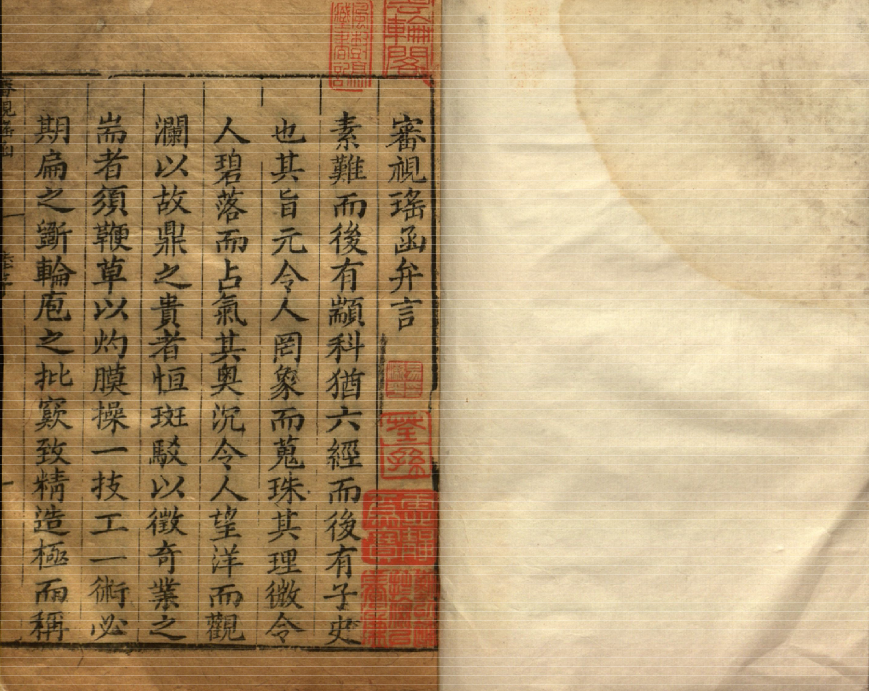 審視瑤函弁言
素難而後有顓科猶六經而後有子史
也其旨元令人罔象而蒐珠其理微令
人碧落而占氣其奧沉令人望洋而觀
瀾以故鼎之貴者恒斑駁以徵奇業之
耑者須鞭草以灼膜操一技工一術必
期扁之斲輪庖之批窾致精造極而稱